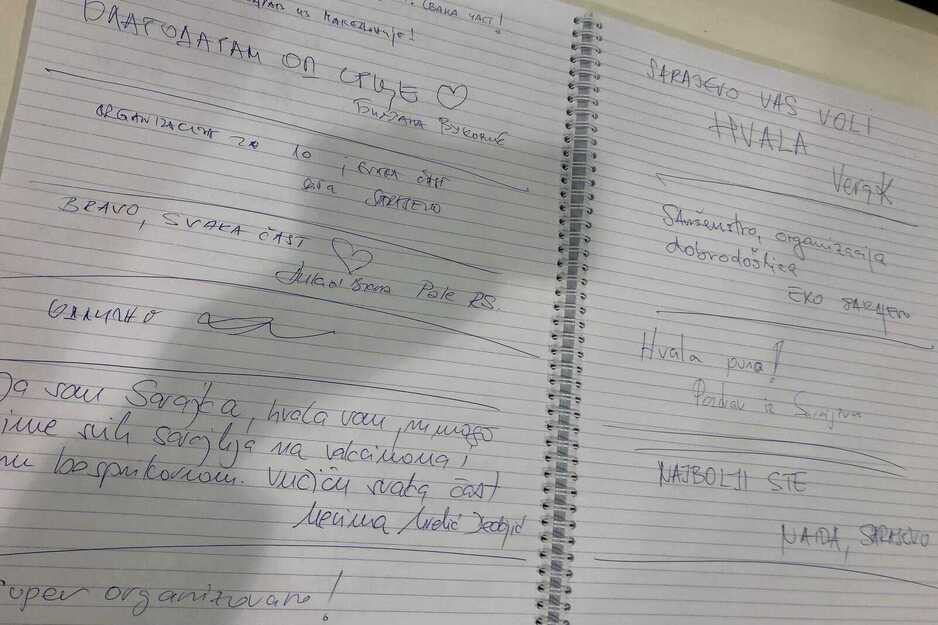 СВАКА ЧАСТ!
ИЗ МАКЕДОНИЈЕ!
БЛАГОДАРАМ ОД СРЦЕ
БИЉАНА ВУКОВИЋ
ORGANIZACIJA ZA 10 i SVAKA ČAST
SARAJEVO
BRAVO, SVAKA ČAST
Pale RS.
ОДЛИЧНО
Ja sam Sarajka, hvala vam
ime svih sarajlija na vakcinama i
Vučiću svaka čast
Super organizovano!
SARAJEVO VAS VOLI
HVALA
Vera K
organizacija
dobrodošlica
EKO SARAJEVO
Hvala puno!
Pozdrav iz Sarajeva
NAJBOLJI STE
NAIDA, SARAJEVO